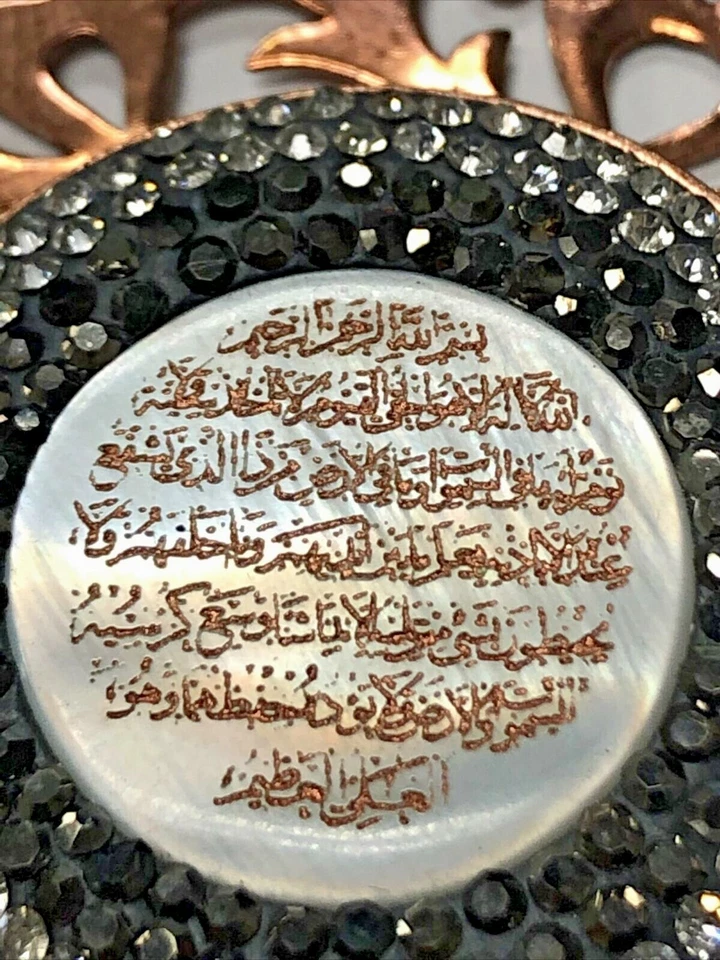 بسم الله الرحمن الرحيم
الله لا إله إلا هو الحي القيوم لا تأخذه سنة ولا
نوم له ما في السموات وما في الأرض من ذا الذي يشفع
عنده إلا بإذنه يعلم ما بين أيديهم وما خلفهم ولا
يحيطون بشيء من علمه إلا بما شاء وسع كرسيه
السموات والأرض ولا يؤده حفظهما وهو
العلي العظيم